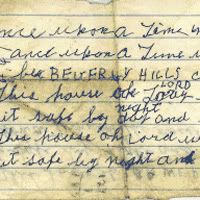 nce upon a Time in
and upon a Time
be BEVERLY HILLS
LORD
This house oh Lord
night
it safe by day and
This house oh lord w
it safe by night and